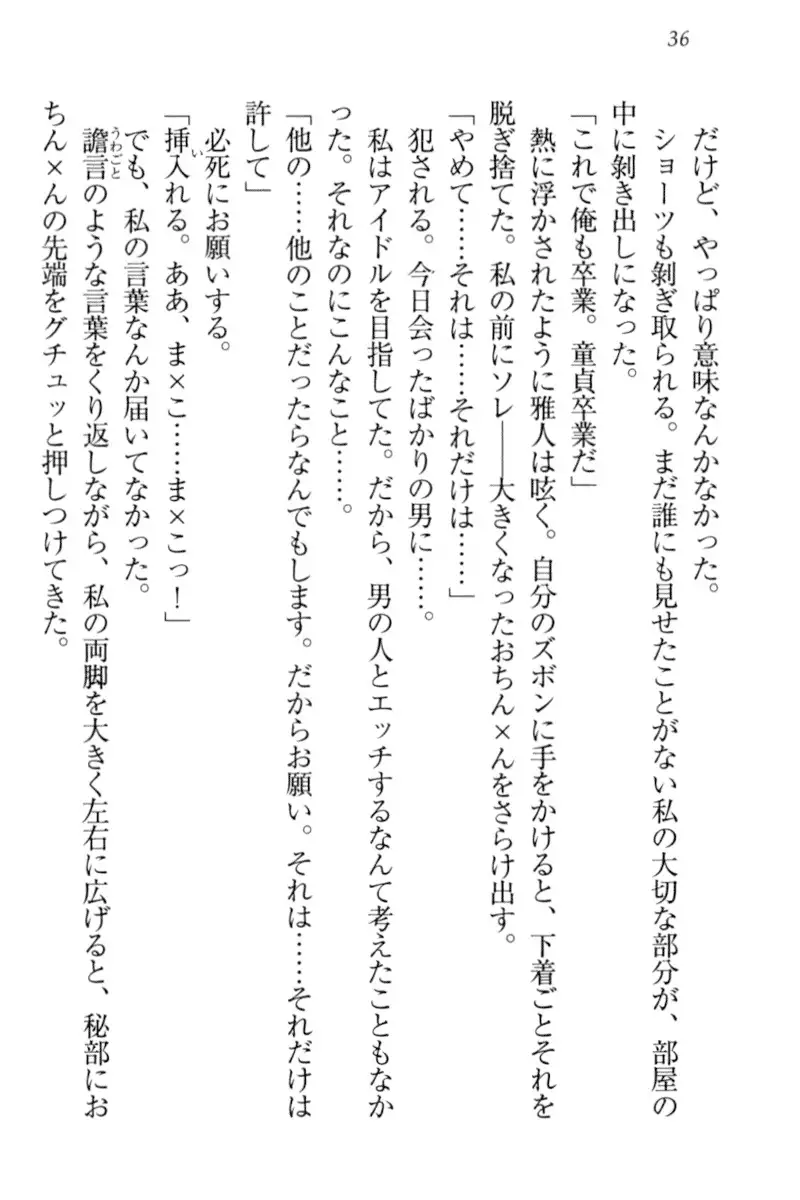 36
だけど、やっぱり意味なんかなかった。
ショーツも剝ぎ取られる。まだ誰にも見せたことがない私の大切な部分が、部屋の
中に剝き出しになった。
「これで俺も卒業。童貞卒業だ」
熱に浮かされたように雅人は呟く。自分のズボンに手をかけると、下着ごとそれを
脱ぎ捨てた。私の前にソレ――大きくなったおちん×んをさらけ出す。
「やめて……それは……それだけは……」
犯される。今日会ったばかりの男に……。
私はアイドルを目指してた。だから、男の人とエッチするなんて考えたこともなか
った。それなのにこんなこと……。
「他の……他のことだったらなんでもします。だからお願い。それは……それだけは
許して」
必死にお願いする。
「挿入れる。ああ、ま×こ……ま×こっ！」
でも、私の言葉なんか届いてなかった。
譫言のような言葉をくり返しながら、私の両脚を大きく左右に広げると、秘部にお
ちん×んの先端をグチュッと押しつけてきた。